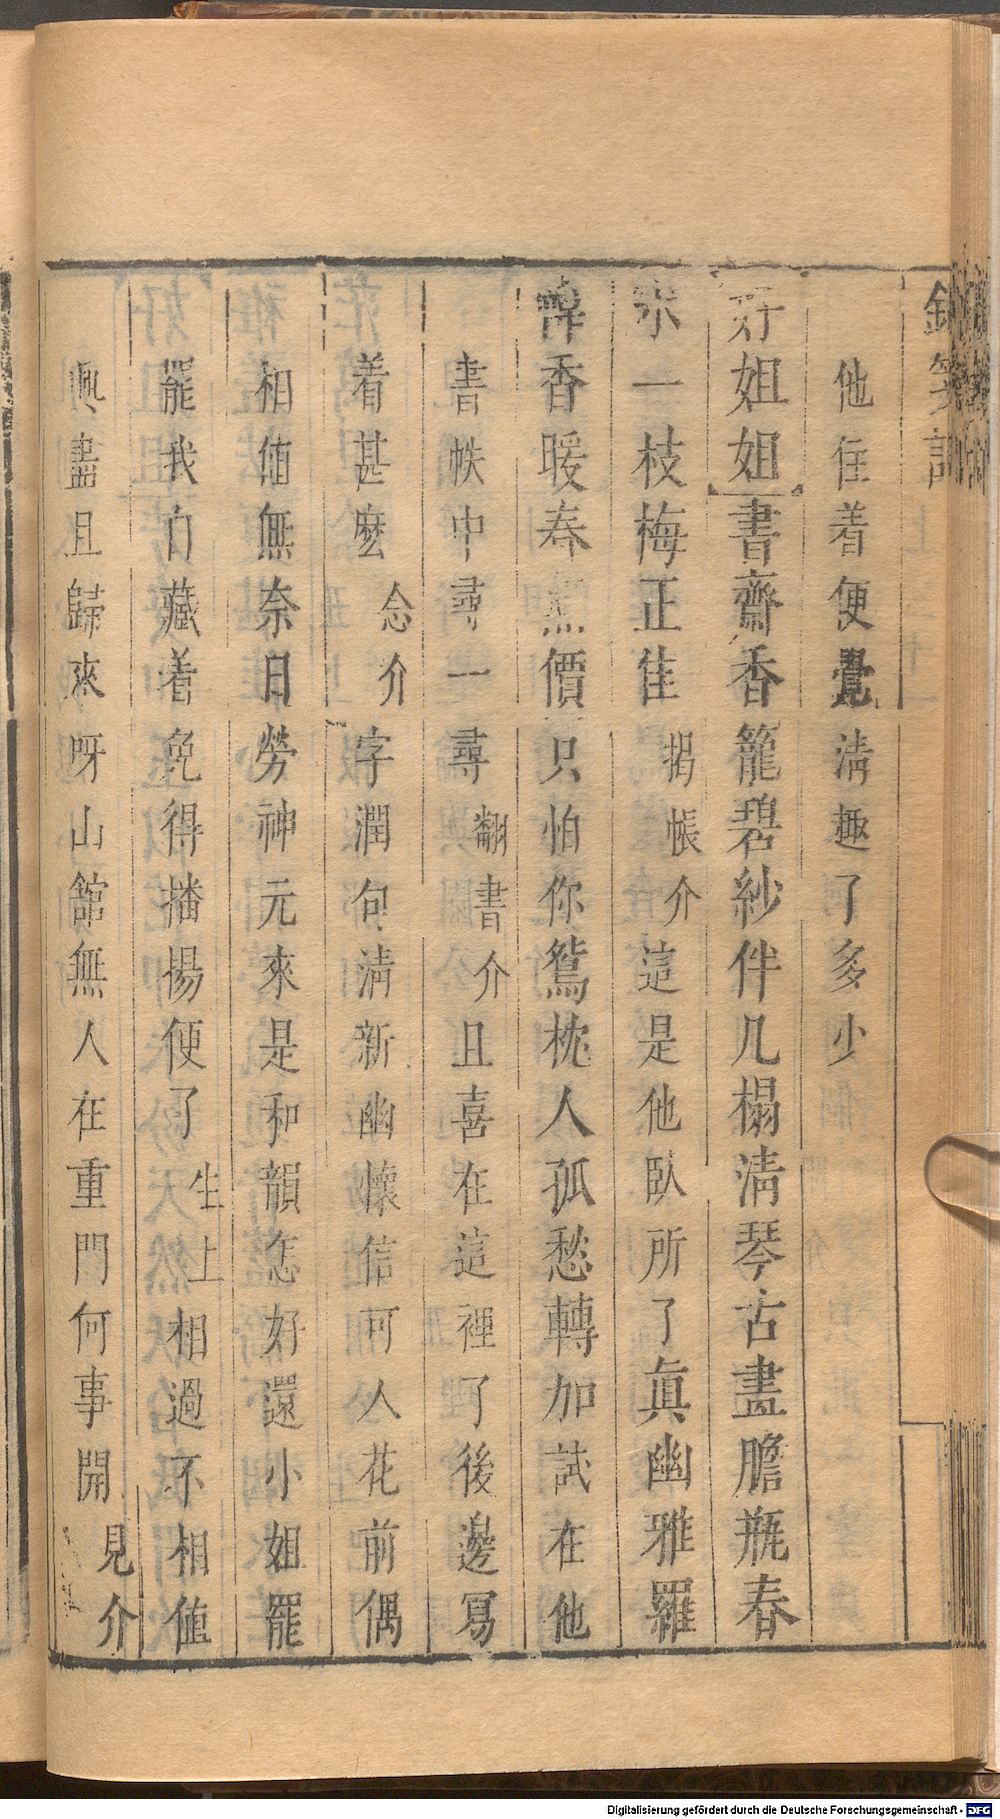 他住着便覺淸趣了多少
好姐姐書齋香籠碧紗伴几榻淸琴古畫膽瓶春
一枝梅正佳揭帳介這是他臥所了眞幽雅羅
幃香暖春無價只怕你鴛枕人孤愁轉加試在他
書帙中尋一尋翻書介且喜在這裡了後邊寫
着甚麽念介字潤句淸新幽懷信可人花前偶
相値無奈日勞神元來是和韻怎好還小姐罷
罷我自藏着免得播揚便了生上相過不相値
興盡且歸來呀山舘無人在重門何事開見介
Digitalisierung gefördert durch die Deutsche Forschungsgemeinschaft - DFG